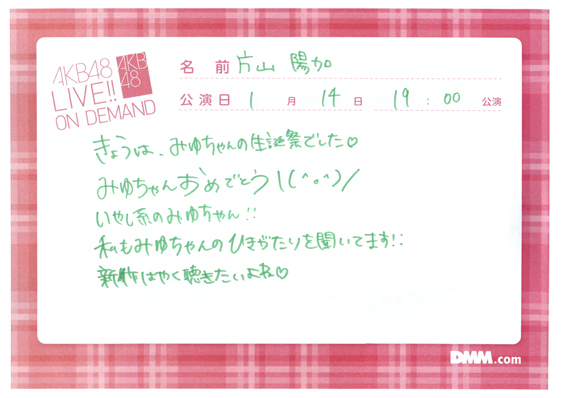 AKB48
LIVE!!
ON DEMAND
AKB
48
名 前 片山 陽加
公演日 1 月 14 日 19 : 00 公演
きょうは、みゆちゃんの生誕祭でした♡
みゆちゃんおめでとう\(^o^)/
いやし系のみゆちゃん!!
私もみゆちゃんのひきがたりを聞いてます!!
新作はやく聴きたいよね♡
DMM.com